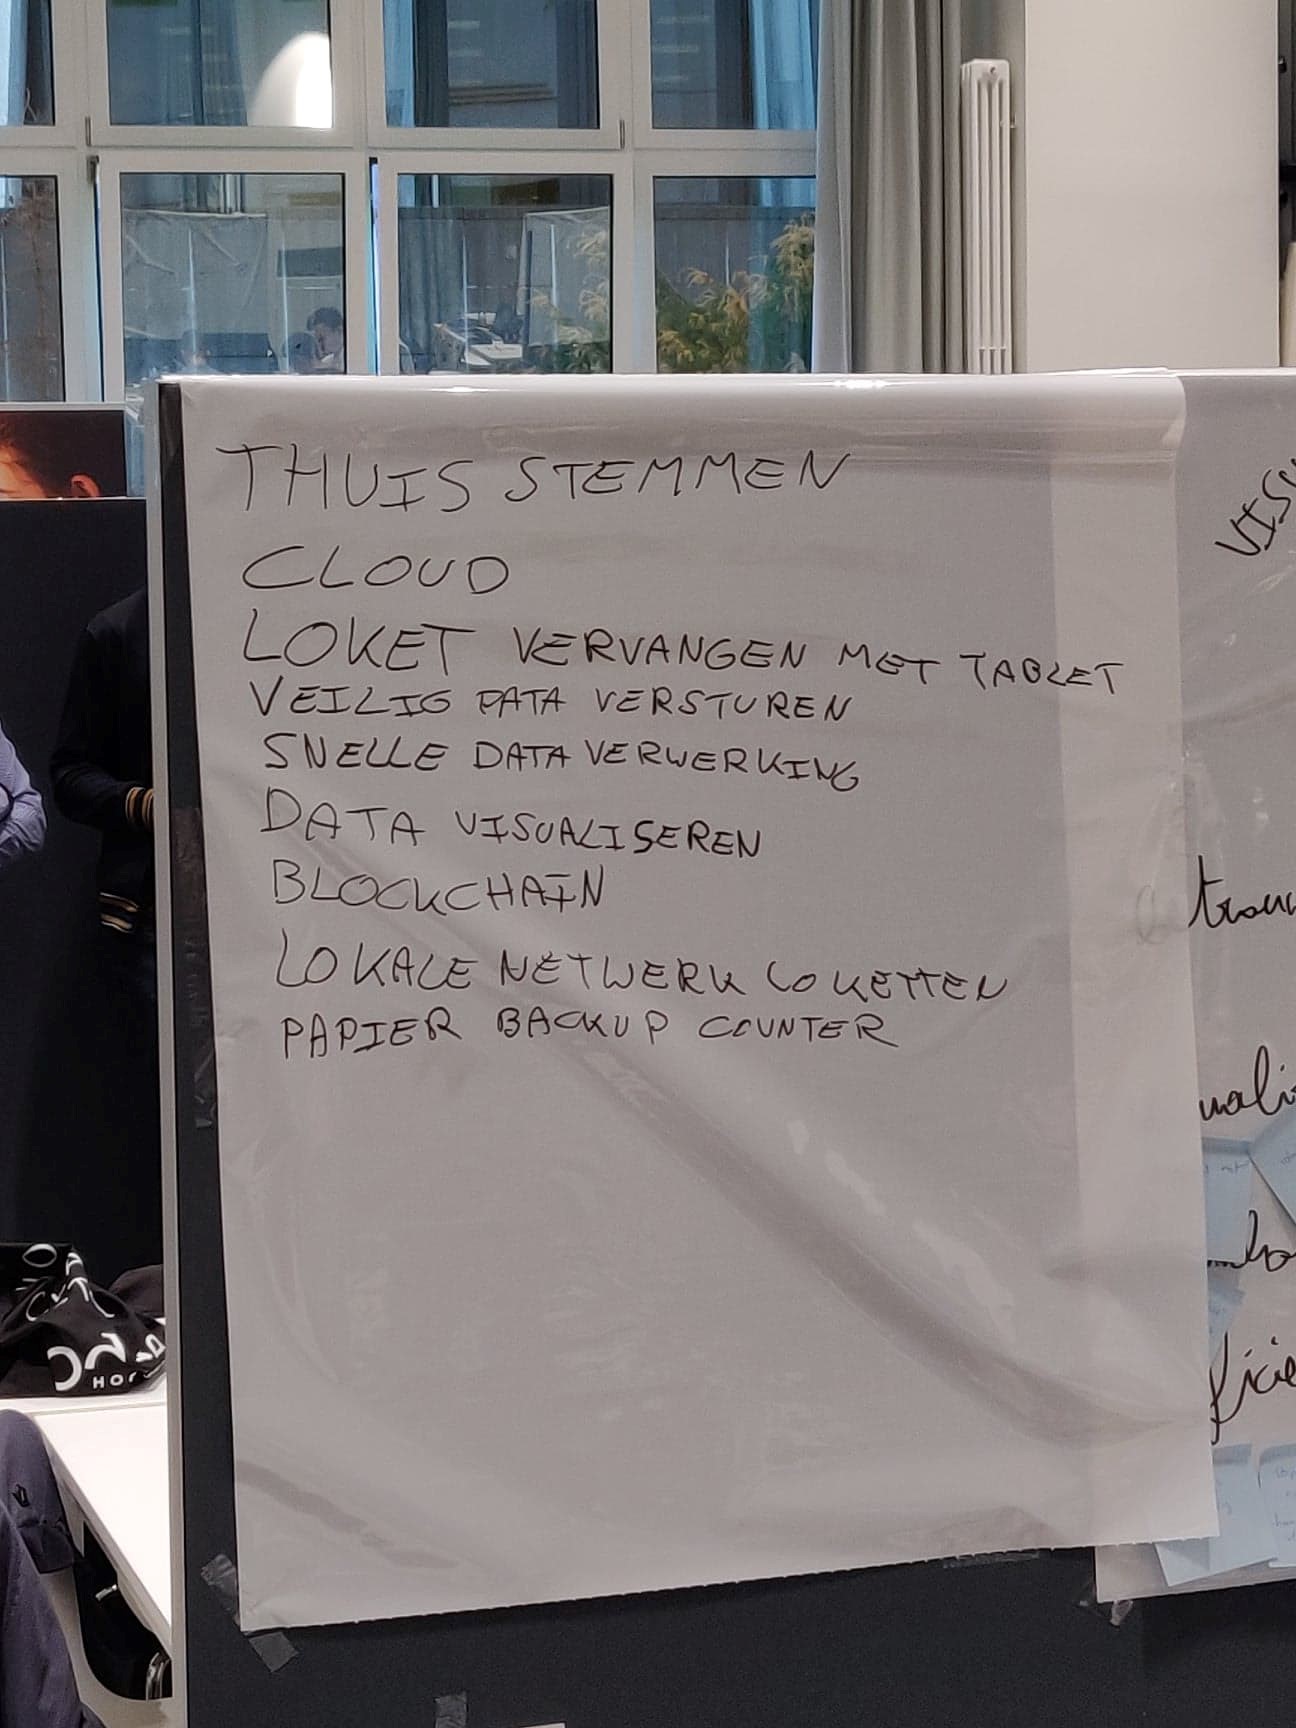 THUIS STEMMEN
CLOUD
LOKET VERVANGEN MET TABLET
VEILIG DATA VERSTUREN
SNELLE DATA VERWERKING
DATA VISUALISEREN
BLOCKCHAIN
LOKALE NETWERK LOKETTEN
PAPIER BACKUP COUNTER